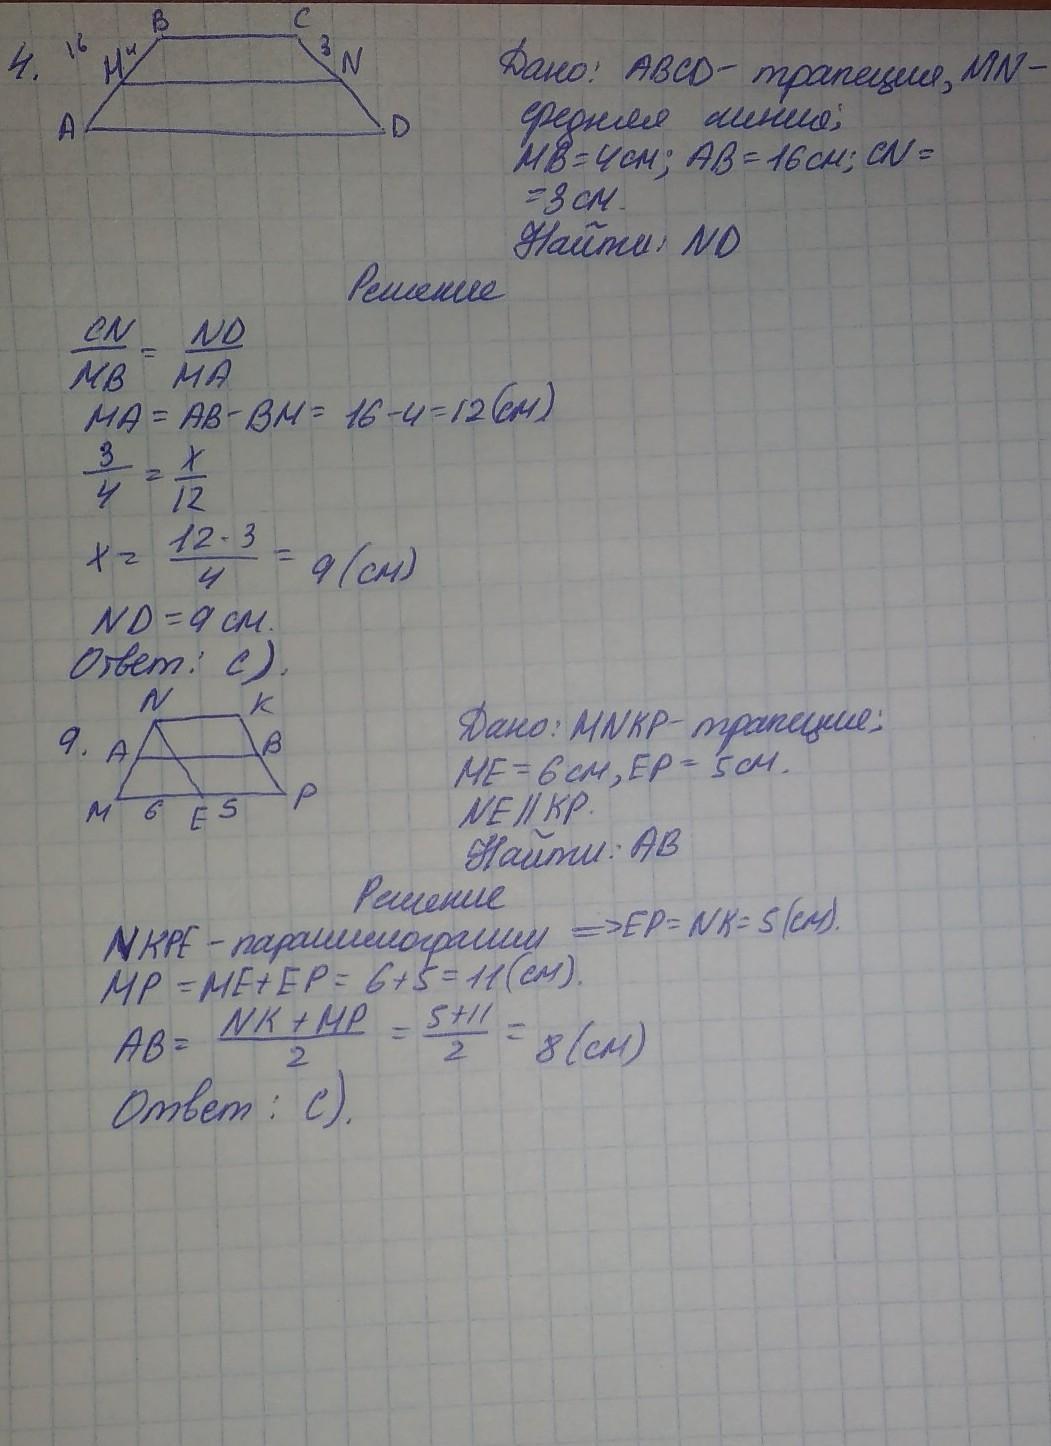 4.
16
B
C
M
4
3
N
A
D
Дано: ABCD - трапеция, MN -
средняя линия;
MB = 4 см; AB = 16 см; CN =
= 3 см.
Найти: ND
Решение
CN/MB = ND/MA
MA = AB - BM = 16 - 4 = 12 (см)
3/4 = x/12
x = 12 · 3/4 = 9 (см)
ND = 9 см.
Ответ: C).
9.
N
K
A
B
M
6
E
5
P
Дано: MNKP - трапеция;
ME = 6 см, EP = 5 см.
NE || KP.
Найти: AB
Решение
NKPE - параллелограмм => EP = NK = 5 (см).
MP = ME + EP = 6 + 5 = 11 (см).
AB = NK + MP/2 = 5 + 11/2 = 8 (см)
Ответ: C).